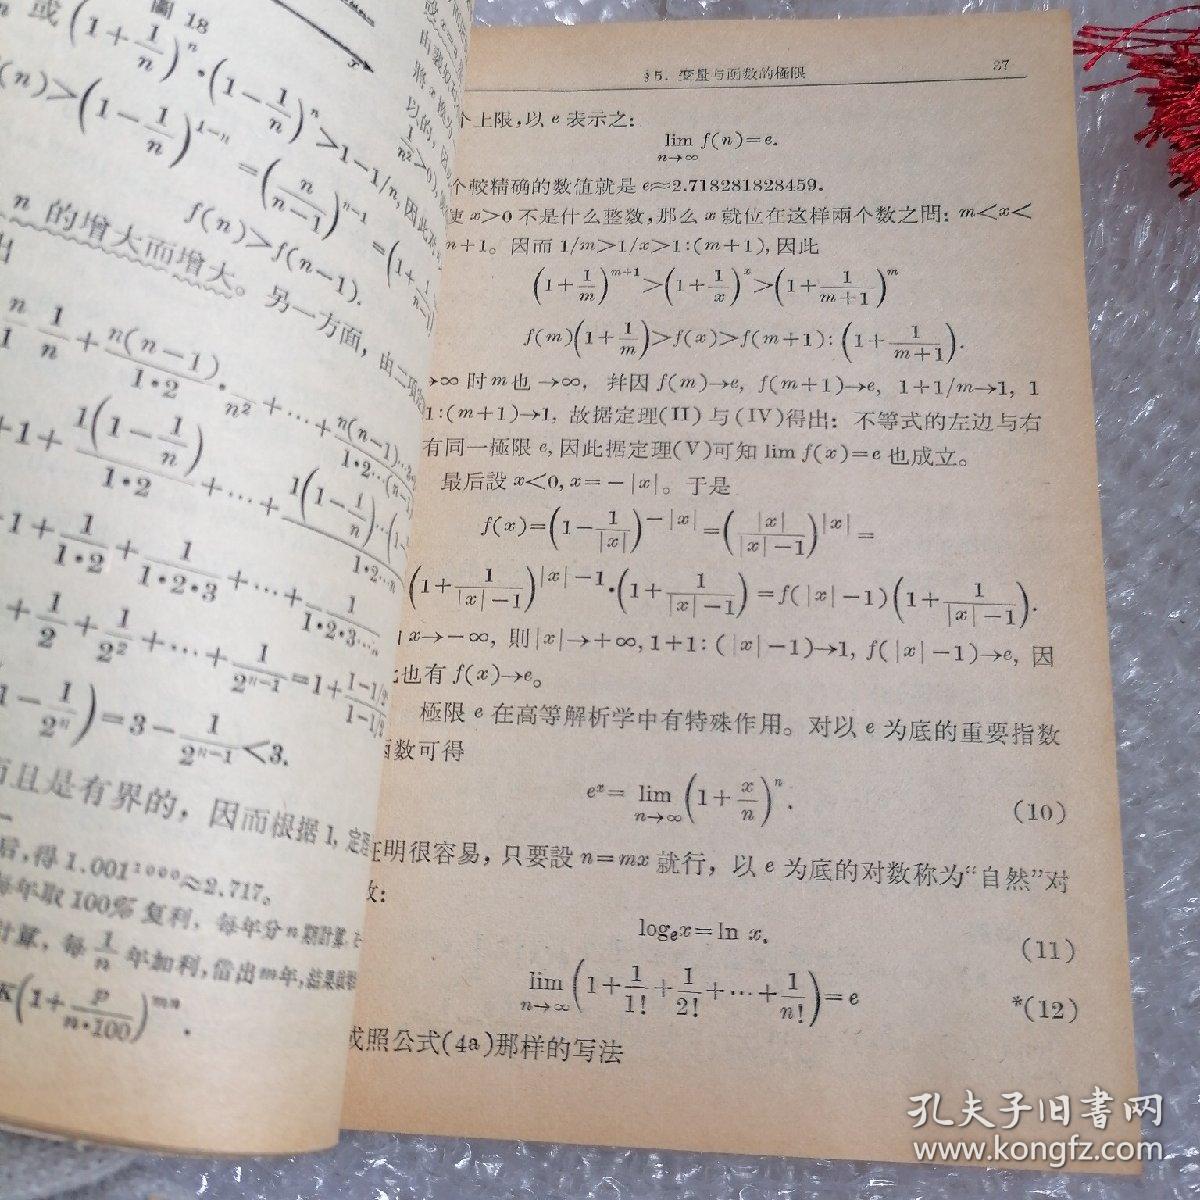 圖 18
或(1+1/n)^n·(1-1/n)^n>1-1/n, 因此
(n)>(1-1/n)^{1-n}=(n/(n-1))^{n-1}=(1+1/(n-1))
f(n)>f(n-1).
n 的增大而增大。另一方面，由二項
n/1 1/n+n(n-1)/1•2·1/n²+…+n(n-1)…
+1+1(1-1/n)/1•2+…+1(1-1/n)…(1-/1•2…n
1+1/1•2+1/1•2•3+…+1/1•2•3…n
+1/2+1/2²+…+1/2^{n-1}=1+
1-1/2^n)=3-1/2^{n-1}<3.
而且是有界的，因而根据 1, 定
后,得 1.001^{1000}≈2.717。
每年取 100% 复利，每年分 n 期計算,
計算，每 1/n 年加利,借出 m 年,結果
K(1+p/(n•100))^{mn}.
§5. 变量与函数的極限
37
个上限,以 e 表示之:
lim_{n→∞} f(n)=e.
个較精确的数值就是 e≈2.718281828459.
使 x>0 不是什么整数,那么 x 就位在这样兩个数之間: m<x<
m+1。因而 1/m>1/x>1:(m+1),因此
(1+1/m)^{m+1}>(1+1/x)^x>(1+1/(m+1))^m
f(m)(1+1/m)>f(x)>f(m+1):(1+1/(m+1)).
→∞ 时 m 也 →∞, 幷因 f(m)→e, f(m+1)→e, 1+1/m→1, 1
1:(m+1)→1, 故据定理(II)与(IV)得出: 不等式的左边与右
有同一極限 e,因此据定理(V)可知 lim f(x)=e 也成立。
最后設 x<0, x=-|x|。于是
f(x)=(1-1/|x|)^{-|x|}=(|x|/(|x|-1))^{|x|}=
(1+1/(|x|-1))^{|x|-1}·(1+1/(|x|-1))=f(|x|-1)(1+1/(|x|-1)).
x→-∞, 則|x|→+∞, 1+1:(|x|-1)→1, f(|x|-1)→e, 因
也有 f(x)→e。
極限 e 在高等解析学中有特殊作用。对以 e 为底的重要指数
函数可得
e^x=lim_{n→∞}(1+x/n)^n. (10)
証明很容易，只要設 n=mx 就行，以 e 为底的对数称为“自然”对
数:
log_e x=ln x. (11)
lim_{n→∞}(1+1/1!+1/2!+…+1/n!)=e *(12)
或照公式(4a)那样的写法
孔夫子旧書网
www.kongfz.com